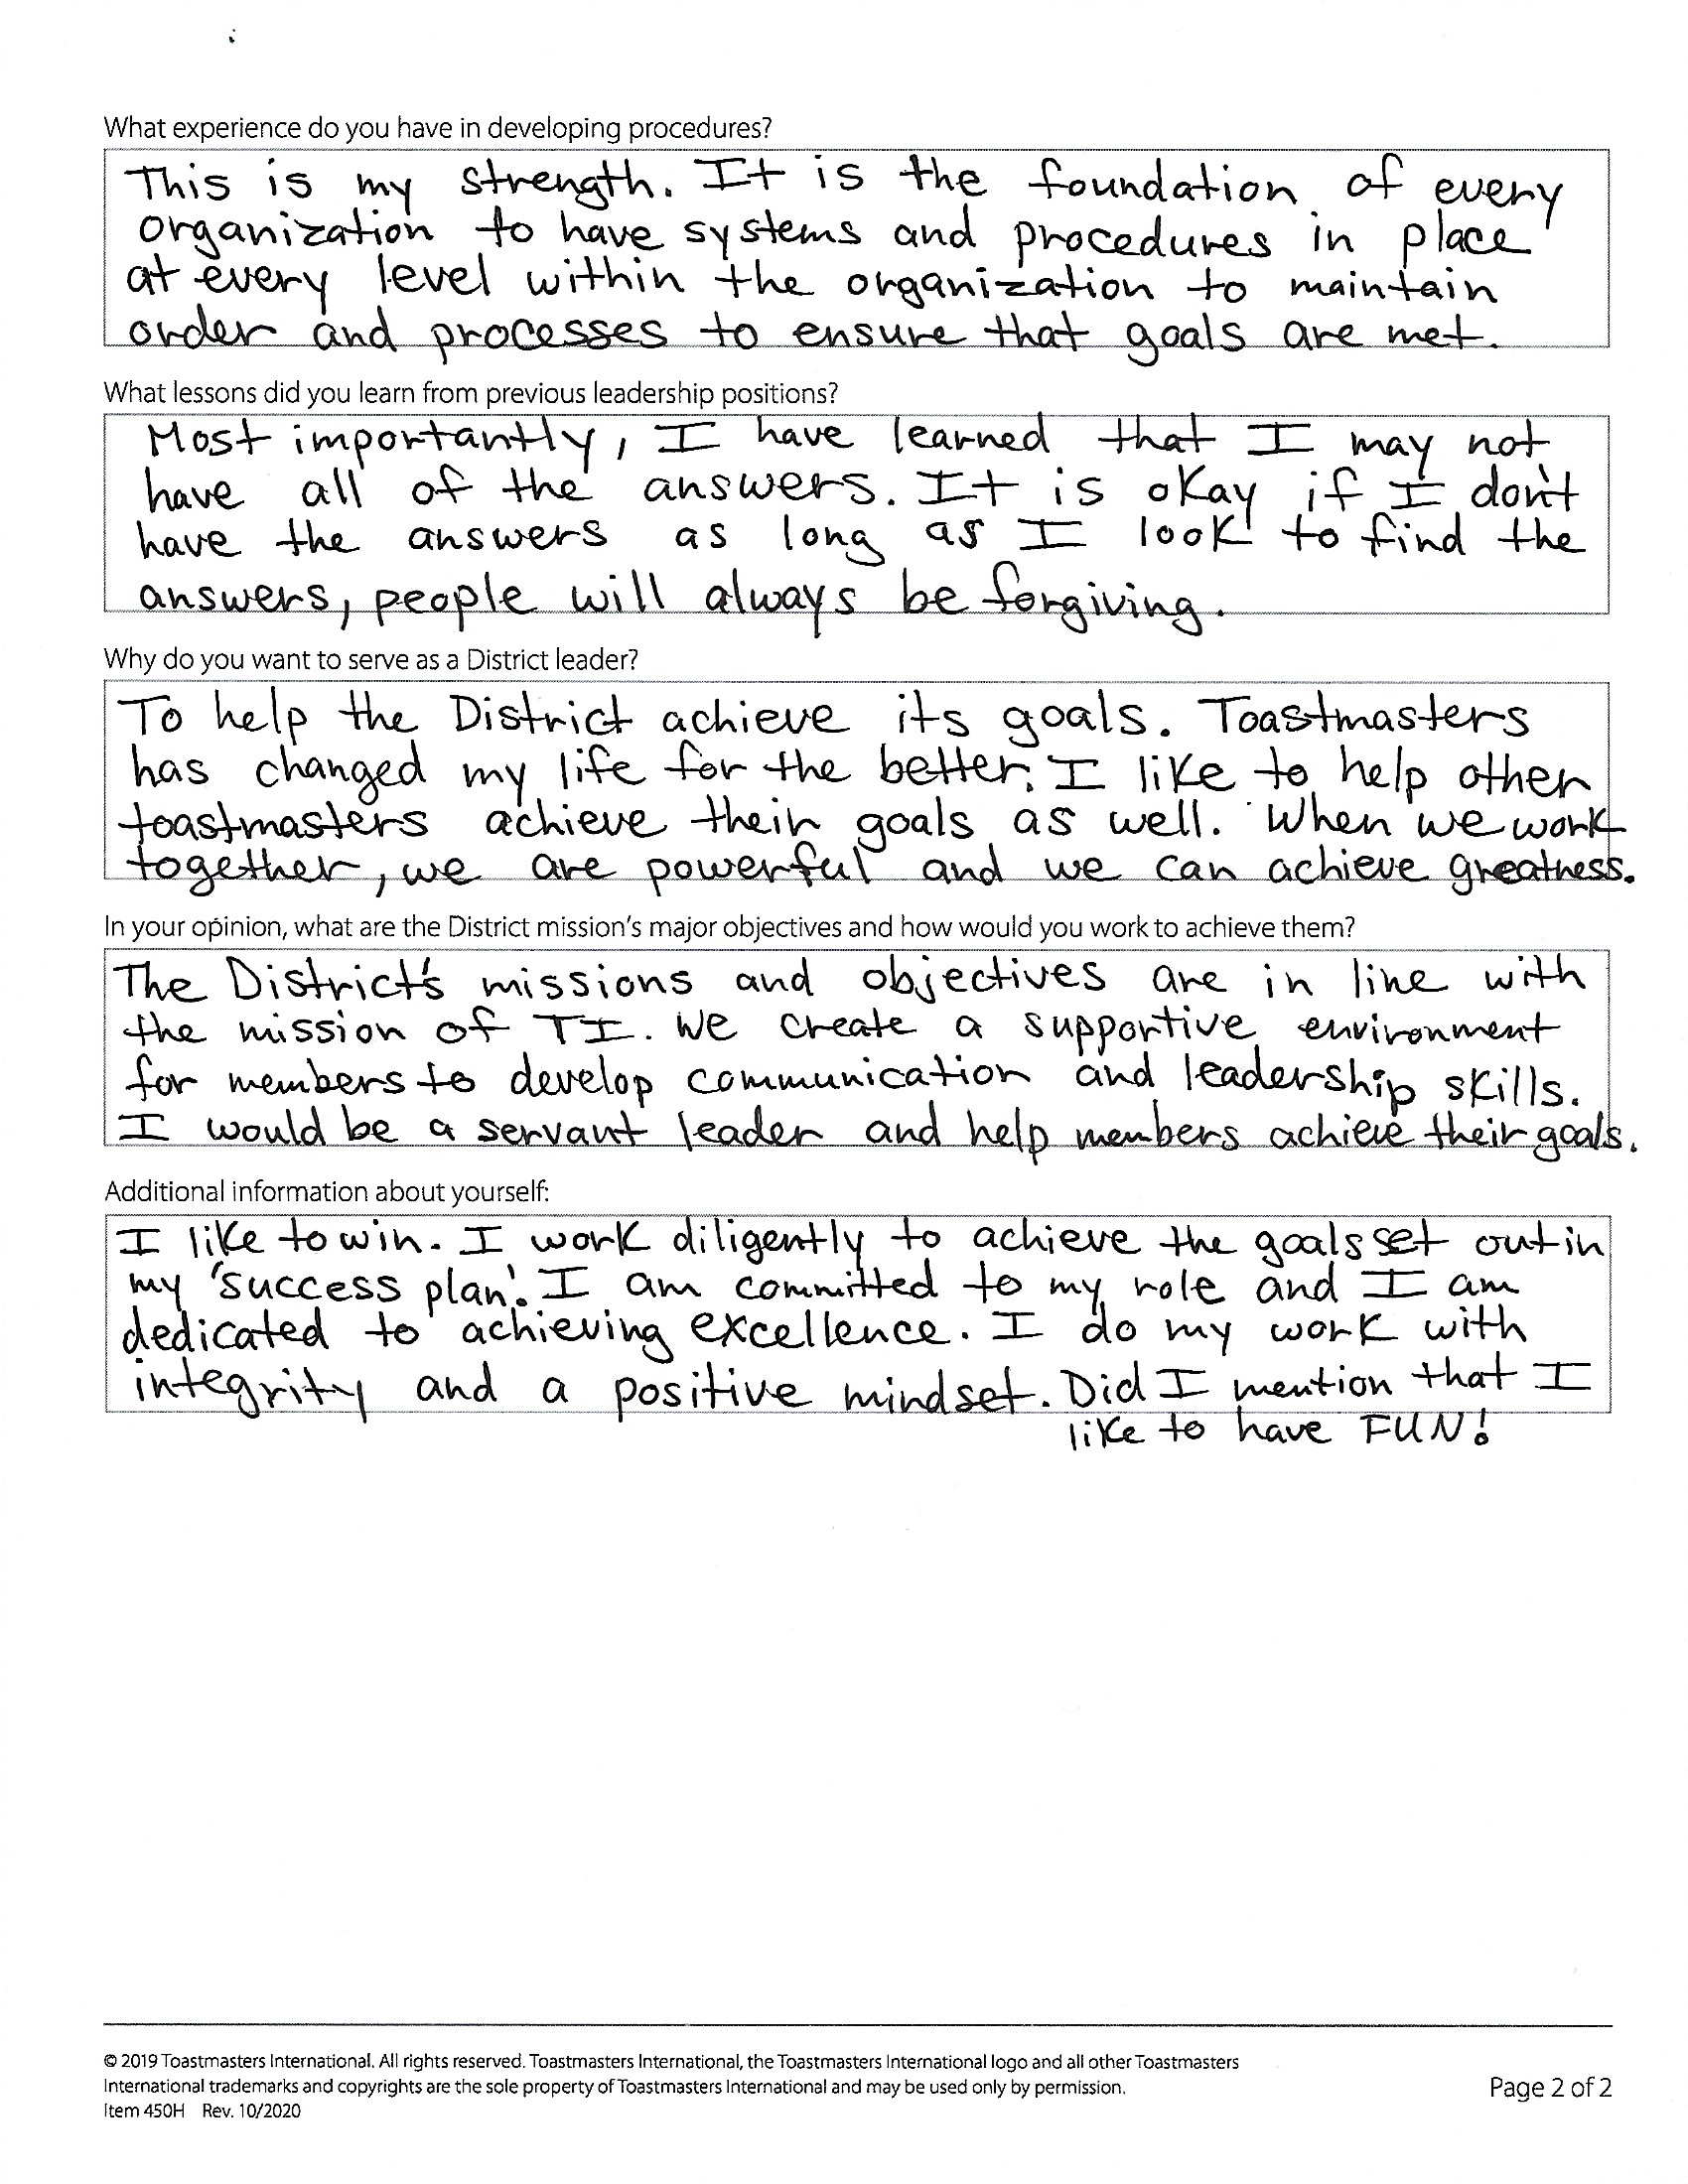 What experience do you have in developing procedures?
This is my strength. It is the foundation of every
organization to have systems and procedures in place
at every level within the organization to maintain
order and processes to ensure that goals are met.
What lessons did you learn from previous leadership positions?
Most importantly, I have learned that I may not
have all of the answers. It is okay if I don't
have the answers as long as I look to find the
answers, people will always be forgiving.
Why do you want to serve as a District leader?
To help the District achieve its goals. Toastmasters
has changed my life for the better. I like to help other
toastmasters achieve their goals as well. When we work
together, we are powerful and we can achieve greatness.
In your opinion, what are the District mission's major objectives and how would you work to achieve them?
The District's missions and objectives are in line with
the mission of TI. We create a supportive environment
for members to develop communication and leadership skills.
I would be a servant leader and help members achieve their goals.
Additional information about yourself:
I like to win. I work diligently to achieve the goals set out in
my 'success plan'. I am committed to my role and I am
dedicated to achieving excellence. I do my work with
integrity and a positive mindset. Did I mention that I
like to have FUN!
© 2019 Toastmasters International. All rights reserved. Toastmasters International, the Toastmasters International logo and all other Toastmasters
International trademarks and copyrights are the sole property of Toastmasters International and may be used only by permission.
Item 450H Rev. 10/2020
Page 2 of 2